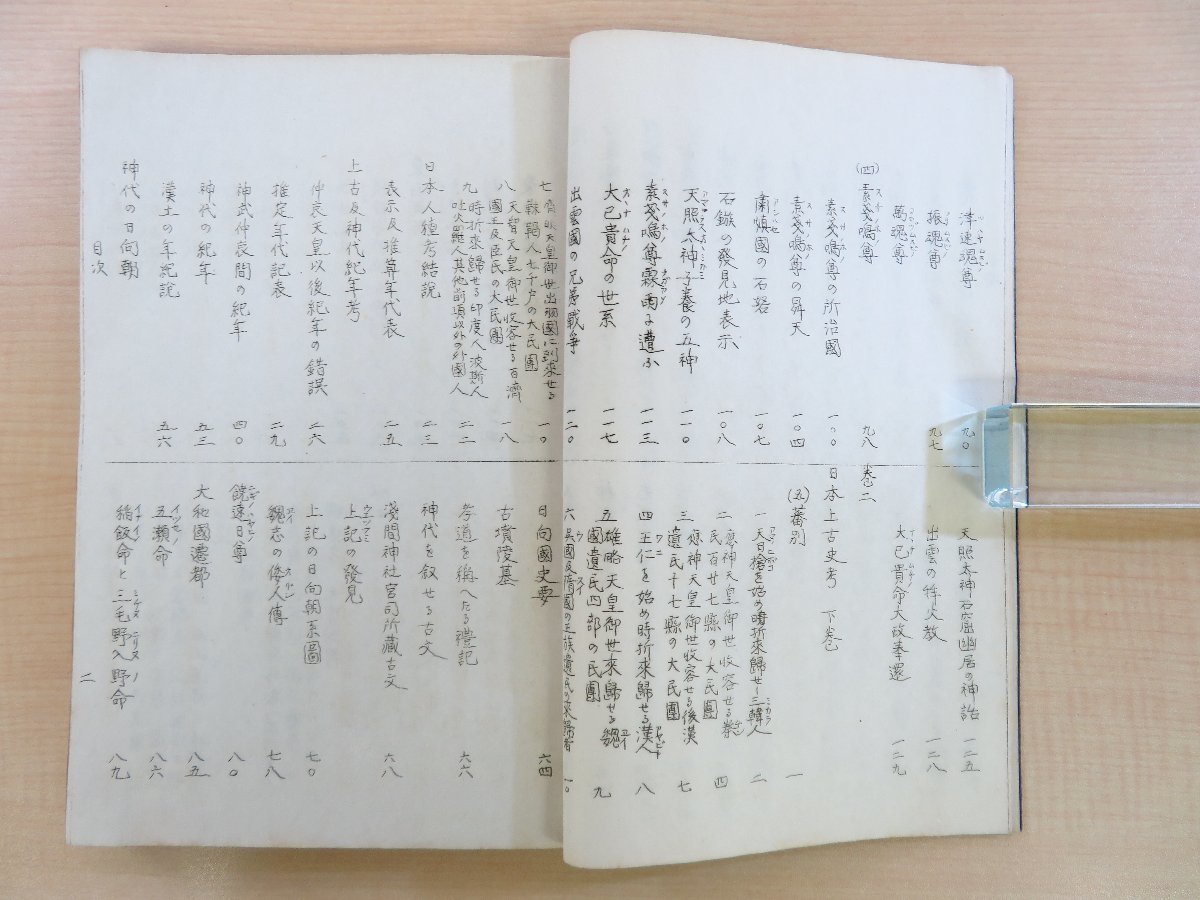 津速魂尊 九〇
振魂尊 九七
萬魂尊
(四)素戔嗚尊 九八
素戔嗚尊の所治國 一〇〇
素戔嗚尊の昇天 一〇四
肅愼國の石砮 一〇七
石鏃の發見地表示 一〇八
天照太神子養の五神 一一〇
素戔嗚尊霖雨に遭ふ 一一三
大己貴命の世系 一一七
出雲國の兄弟戰爭 一二〇
天照太神石窟幽居の神話 一二五
出雲の拜火教 一二八
大己貴命大政奉還 一二九
卷二
日本上古史考 下卷
(五)蕃別 一
一 天日槍を始め時折來歸せし三韓人 二
二 應神天皇御世收容せる秦民百廿七縣の大民團 四
三 應神天皇御世收容せる後漢靈民十七縣の大民團 七
四 王仁を始め時折來歸せる漢人 八
五 雄略天皇御世來歸せる魏國遺民四部の民團 九
六 吳國及隋國の王族遺民の來歸者 一〇
七 齊明天皇御世出羽國に到來せる靺鞨人七千戶の大民團 一〇
八 天智天皇御世收容せる百濟國王及臣民の大民團 一八
九 時折來歸せる印度人波斯人吐火羅人其他前項以外の外國人 二二
日本人種考結說 二三
表示及推算年代表 二五
上古及神代紀年考
仲哀天皇以後紀年の錯誤 二六
推定年代記表 二九
神武仲哀間の紀年 四〇
神代の紀年 五三
漢土の年紀說 五六
神代の日向朝
目次
日向國史要 六四
古墳陵墓
孝道を稱へたる禮記 六六
神代を叙せる古文
淺間神社宮司所藏古文 六八
上記の發見
上記の日向朝系圖 七〇
魏志の倭人傳 七八
饒速日尊 八〇
大和國遷都 八五
五瀨命 八六
稻飯命と三毛野入野命 八九
二